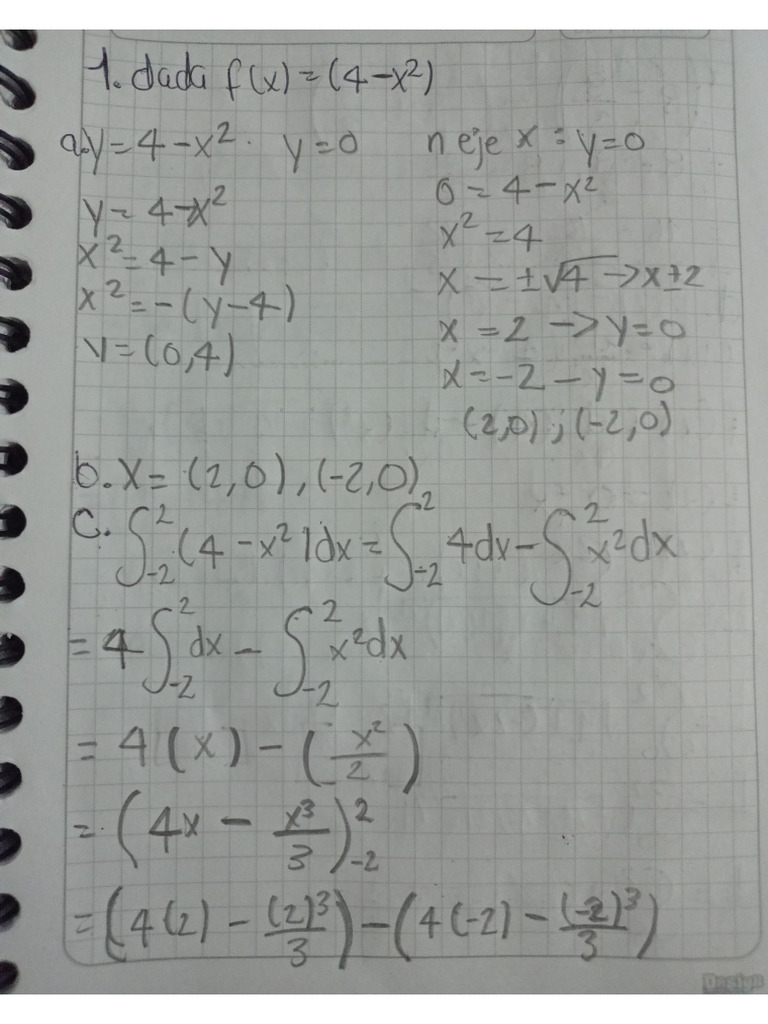 1. dada f(x) = (4-x²)
a. y = 4-x². y=0
y = 4-x²
x² = 4-y
x² = -(y-4)
v = (0,4)
n eje x : y=0
0 = 4-x²
x² = 4
x = ±√4 → x±2
x = 2 → y=0
x = -2 - y=0
(2,0) ; (-2,0)
b. x = (2,0), (-2,0)
c. ∫₋₂² (4-x²)dx = ∫₋₂⁻² 4dx - ∫₋₂² x²dx
= 4∫₋₂² dx - ∫₋₂² x²dx
= 4(x) - (x²/2)
= (4x - x³/3)₋₂²
= (4(2) - (2)³/3) - (4(-2) - (-2)³/3)
Design